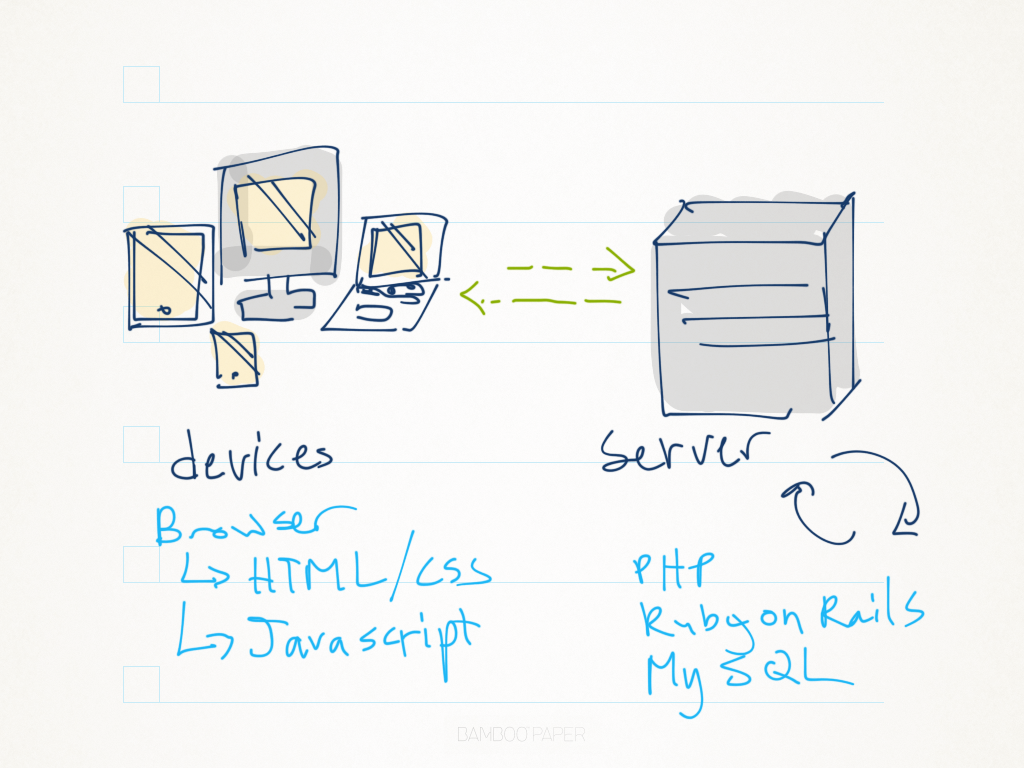 devices
Browser
↳ HTML/CSS
↳ Javascript
Server
PHP
Ruby on Rails
My SQL
BAMBOO PAPER